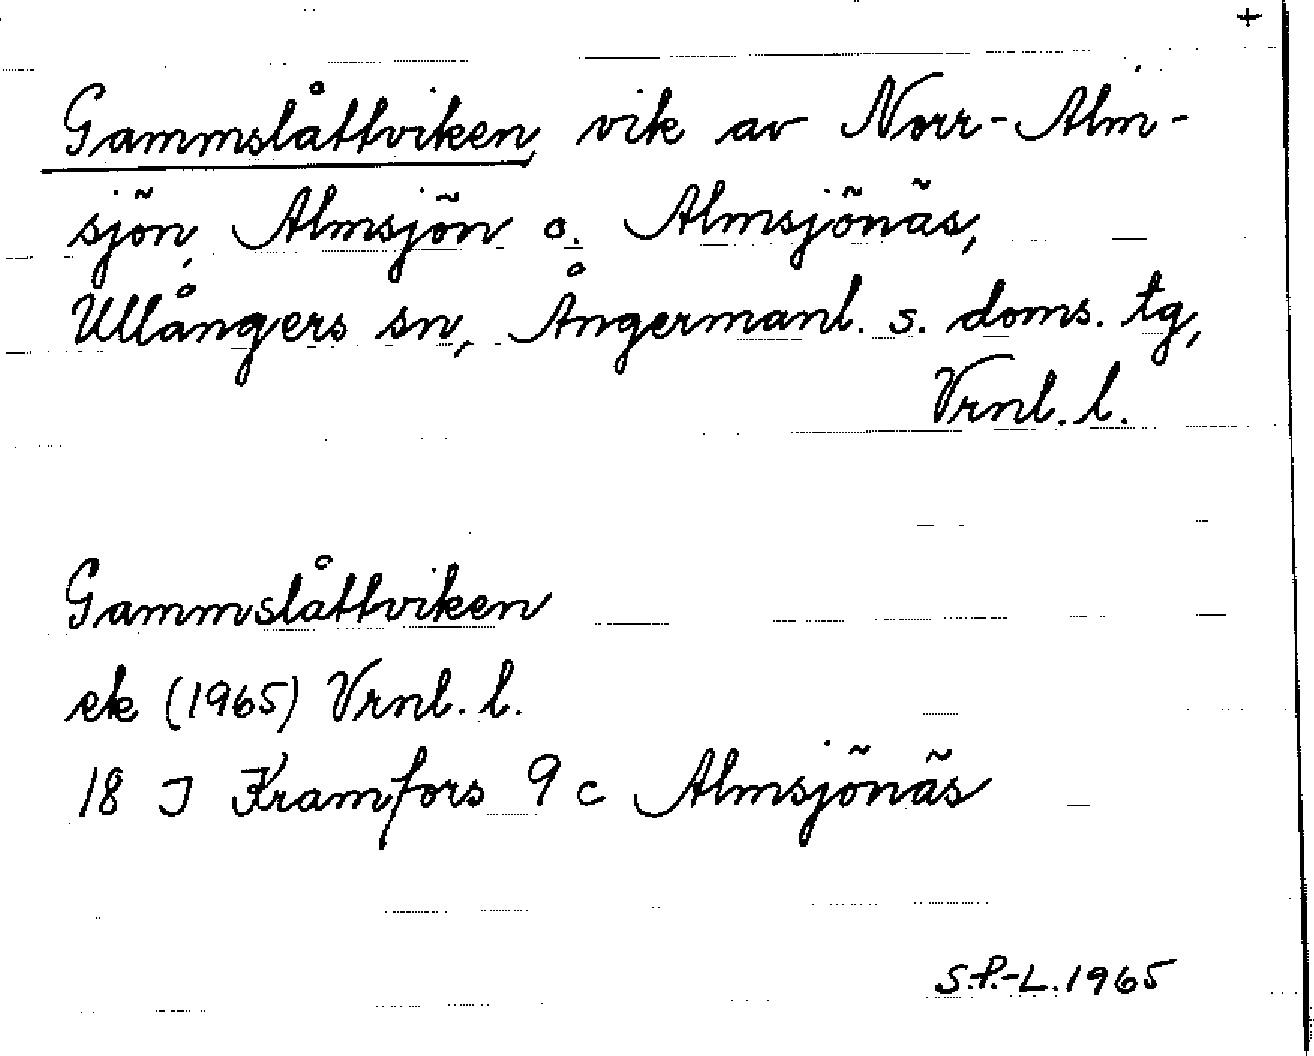 +
Gammslåttviken, vik av Norr-Alm-
sjön, Almsjön o. Almsjönäs,
Ullångers sn, Ångermanl. s. doms. tg,
Vrnl. l.
Gammslåttviken
ek (1965) Vrnl. l.
18 J Kramfors 9 c Almsjönäs
S.P.-L. 1965